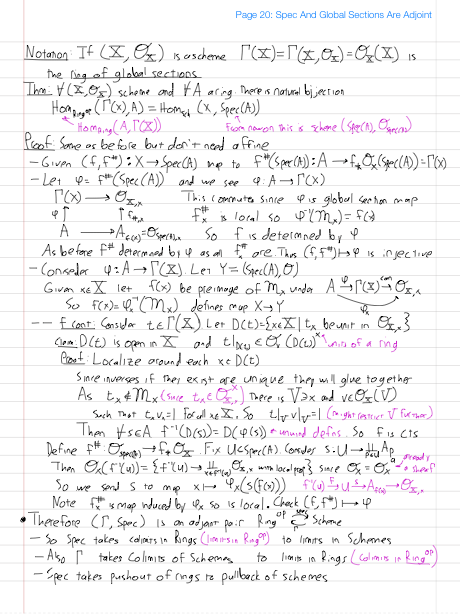 Page 20: Spec And Global Sections Are Adjoint
Notation: If (X, O_X) is a scheme Γ(X)=Γ(X, O_X)=O_X(X) is
the ring of global sections
Thm: ∀(X, O_X) scheme and ∀A a ring. There is natural bijection
Hom_Ring^op(Γ(X), A) = Hom_Sch(X, Spec(A))
Hom_Ring(A, Γ(X)) From now on this is scheme (Spec(A), O_Spec(A))
Proof: Same as before but don't need affine
- Given (f, f^#): X → Spec(A) map to f^#(Spec(A)): A → f_* O_X(Spec(A)) = Γ(X)
- Let φ = f^#(Spec(A)) and we see φ: A → Γ(X)
Γ(X) → O_X,x This commutes since φ is global section map
φ↑ ↑f^#_x f^#_x is local so φ^-1(m_x) = f(x)
A → A_f(x) = O_Spec(A),x So f is determined by φ
As before f^# determined by φ as all f^#_x are. Thus (f, f^#) ↦ φ is injective
- Consider φ: A → Γ(X). Let Y = (Spec(A), O)
Given x∈X let f(x) be preimage of m_x under A →φ Γ(X) →can O_X,x
So f(x) = φ_x^-1(m_x) defines map X → Y φ_x
-- f cont: Consider t∈Γ(X). Let D(t) = {x∈X | t_x be unit in O_X,x}
Claim: D(t) is open in X and t|_D(t) ∈ O_X(D(t))^x units of a ring
Proof: Localize around each x∈D(t)
Since inverses if they exist are unique they will glue together
As t_x ∉ m_x (since t_x ∈ O_X,x^x) there is V∋x and v∈O_X(V)
Such that t_x v_x = 1 for all x∈X. So t|_V v|_V = 1 (might restrict V further)
Then ∀s∈A f^-1(D(s)) = D(φ(s)) unwind defns. So f is cts
Define f^#: O_Spec(A) → f_* O_X. Fix U⊂Spec(A). Consider s: U → ∐_p∈U A_p
Then O_X(f^-1(U)) = {f^-1(U) → ∐ O_X,x with local prop} since O_X = O_X^+ already a sheaf
So we send s to map x ↦ φ_x(s(f(x))) f^-1(U) →f U →s A_f(x) → O_X,x
Note f^#_x is map induced by φ_x so is local. Check (f, f^#) ↦ φ
• Therefore (Γ, Spec) is an adjoint pair Ring^op ⇄ Scheme
- So Spec takes colimits in Rings (limits in Ring^op) to limits in Schemes
- Also Γ takes Colimits of Schemes to limits in Rings (Colimits in Ring^op)
- Spec takes pushout of rings to pullback of schemes